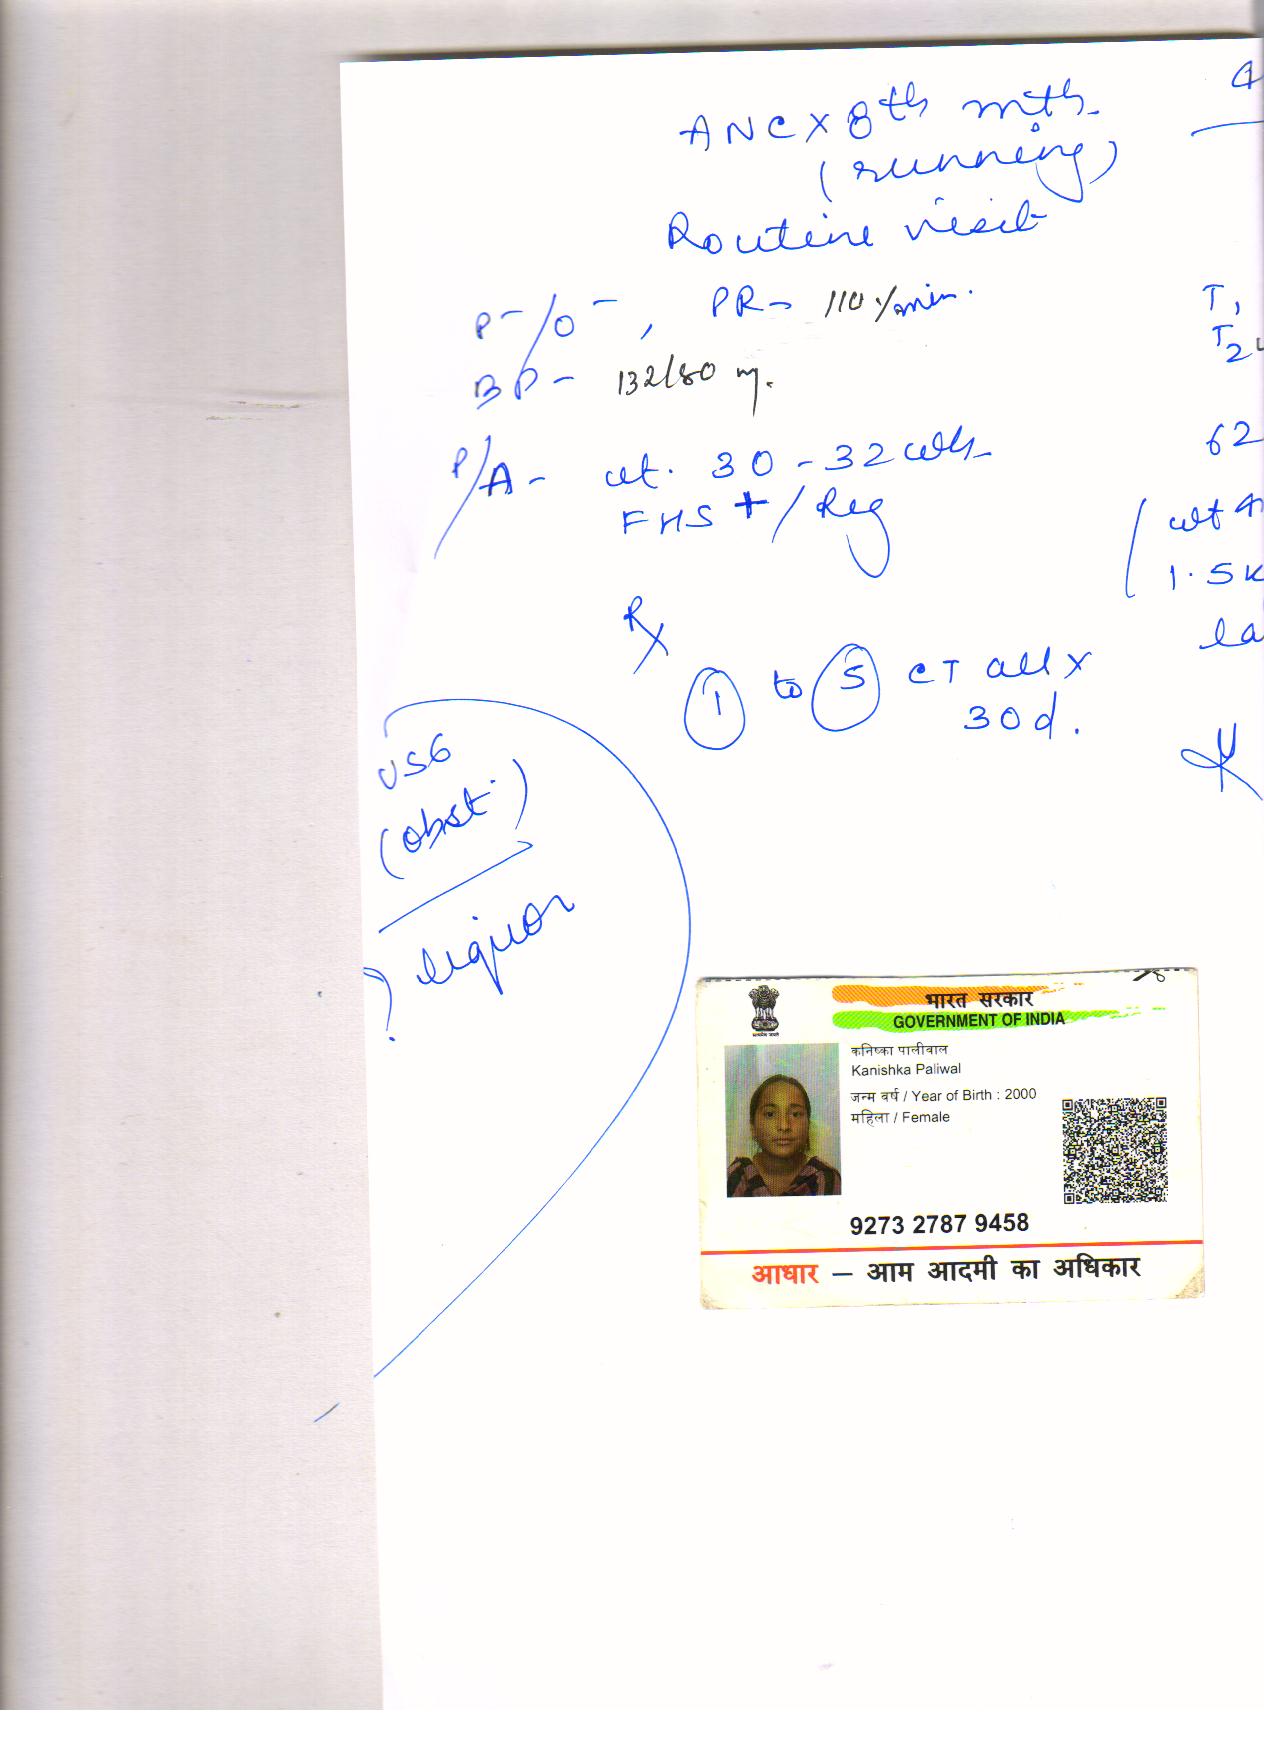 ANC x 8th mth.
(running)
Routine visit
P-/O-, PR- 110/min.
BP- 132/80
P/A- ut. 30-32 wks
FHS +/Reg
Rx
1 to 5 CT all x
30d.
T1
T2
62
wt
1.5 K
la
USG
(obst.)
? liquor
भारत सरकार
GOVERNMENT OF INDIA
कनिष्का पालीवाल
Kanishka Paliwal
जन्म वर्ष / Year of Birth : 2000
महिला / Female
9273 2787 9458
आधार — आम आदमी का अधिकार